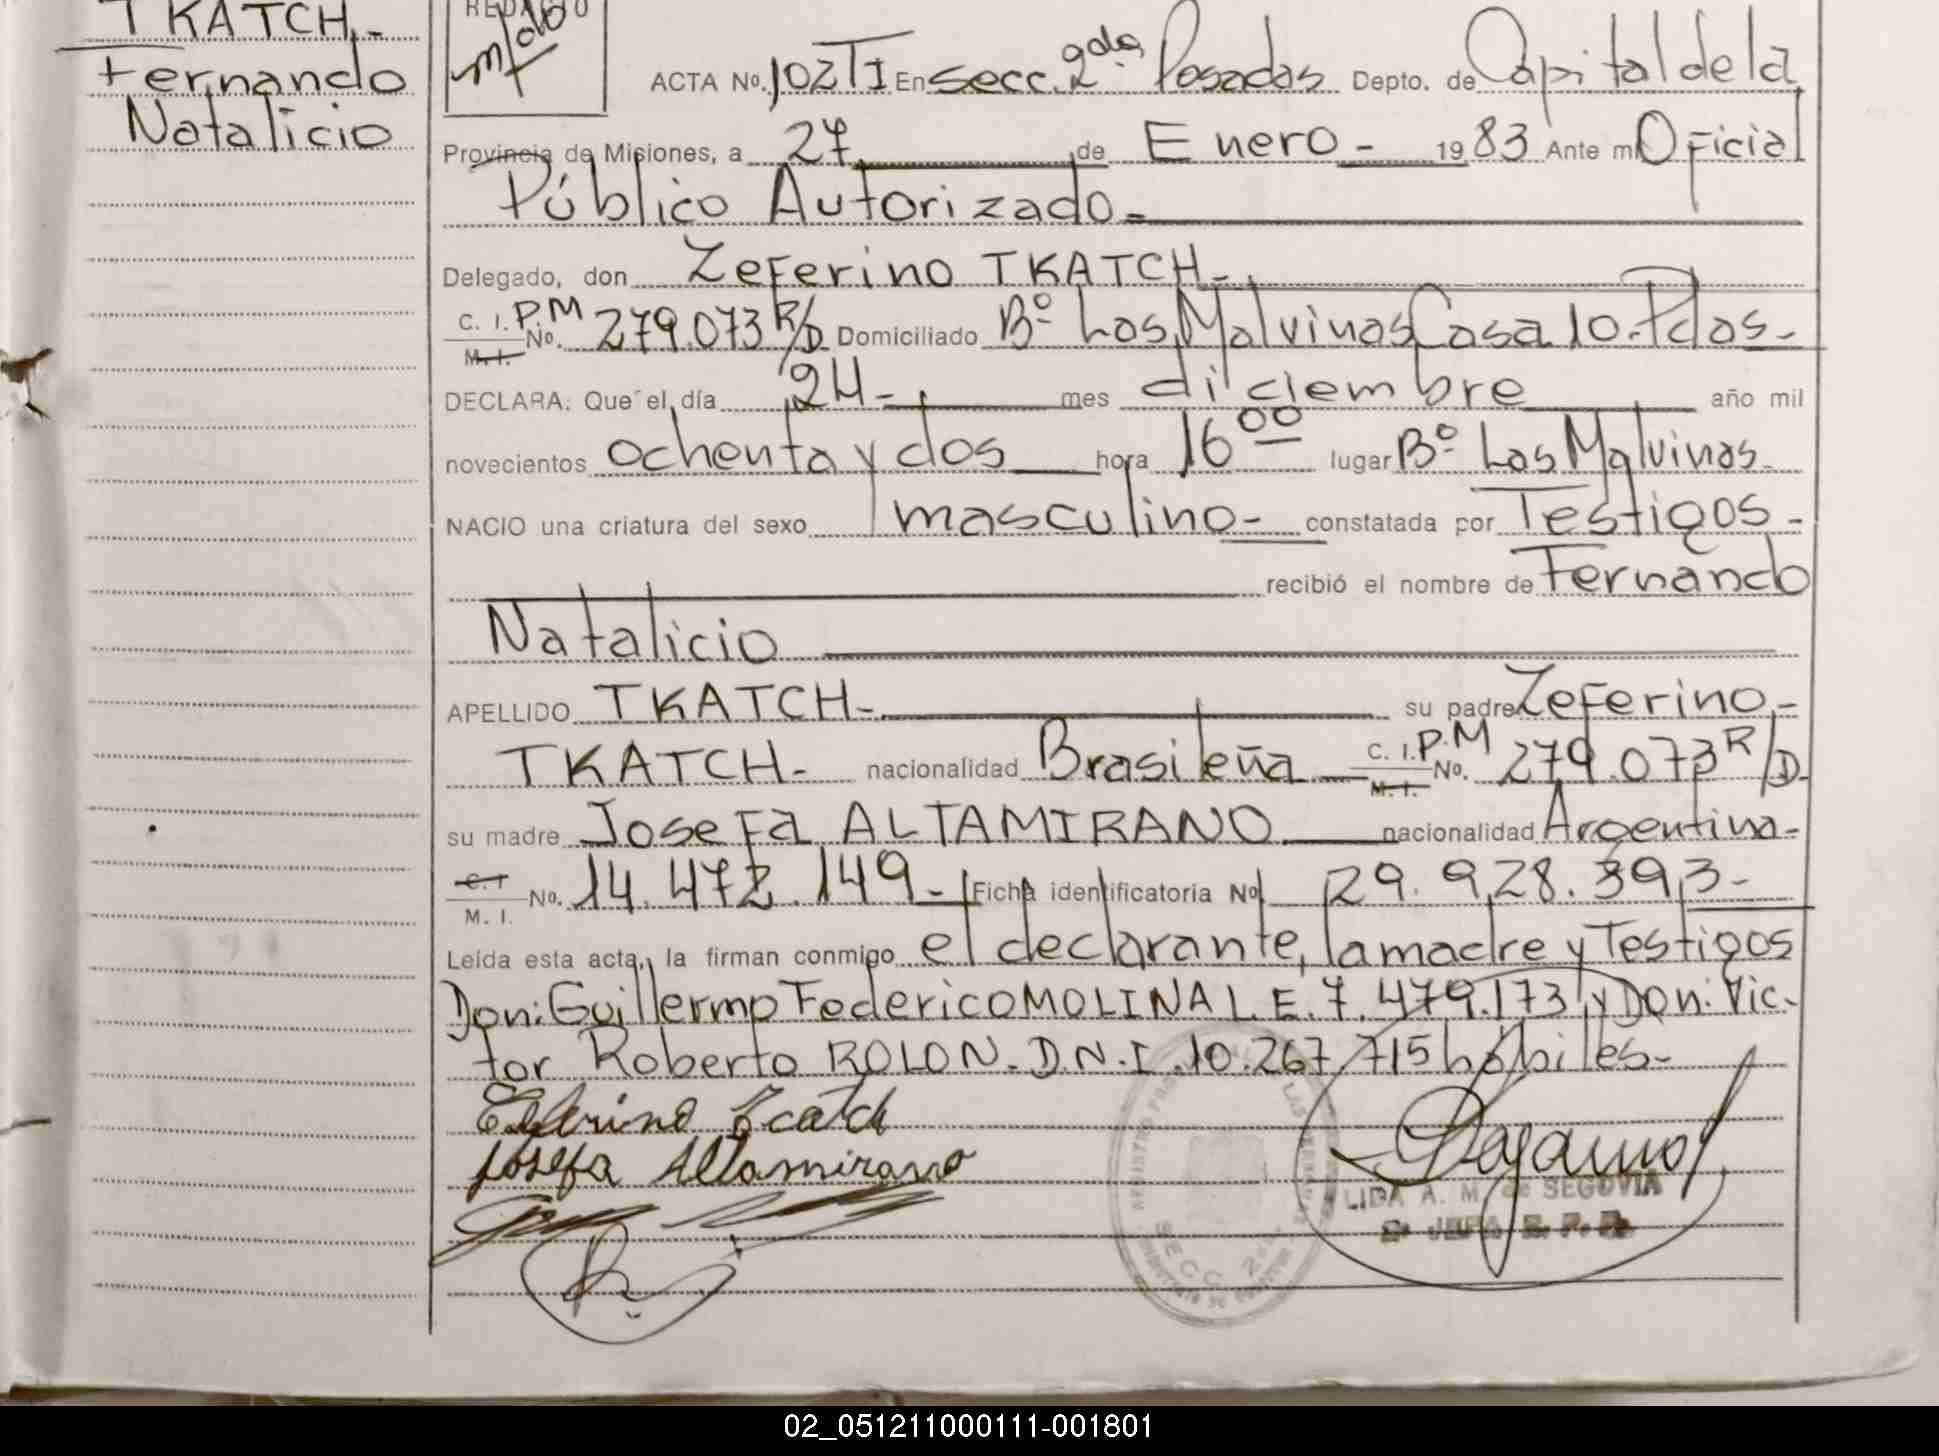 TKATCH.-
Fernando
Natalicio
REDACTO
ACTA No. 102 TI En secc. 2da. Posadas Depto. de Capital de la
Provincia de Misiones, a 27 de Enero - 1983 Ante mi Oficial
Público Autorizado.=
Delegado, don Zeferino TKATCH.-
C. I. P.M No. 279.073 R/D Domiciliado Bº Las Malvinas Casa 10.- Pdas.-
M. I.
DECLARA: Que el día 24.- mes diciembre año mil
novecientos ochenta y dos hora 16 00 lugar Bº Las Malvinas
NACIO una criatura del sexo masculino.- constatada por Testigos.-
recibió el nombre de Fernando
Natalicio
APELLIDO TKATCH.- su padre Zeferino.-
TKATCH.- nacionalidad Brasileña C. I. P.M No. 279.073 R/D.
M. I.
su madre Josefa ALTAMIRANO nacionalidad Argentina.-
C. I No. 14.472.149.- Ficha identificatoria No 29.928.393-
M. I.
Leída esta acta, la firman conmigo el declarante, la madre y Testigos
Don: Guillermo Federico MOLINA L.E. 7.479.173 y Don: Vic-
tor Roberto ROLON. D.N.I. 10.267.715 hábiles.-
Josefa Altamirano
LIDA A. M. de SEGOVIA
SECC. 2da.
02_051211000111-001801